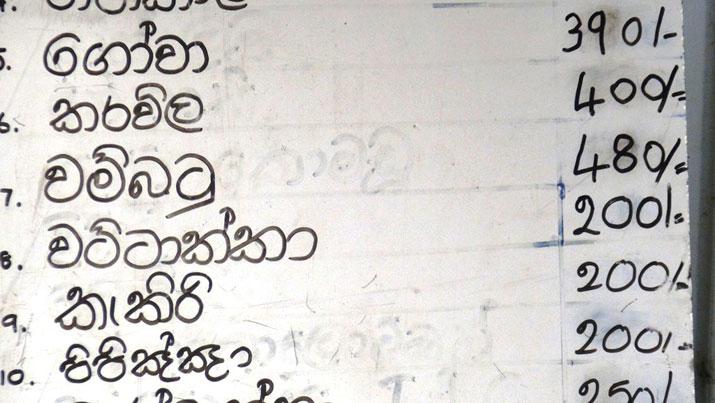 5. ගෝවා 390/-
6. කරවිල 400/=
7. වම්බටු 480/=
8. වට්ටාක්කා 200/=
9. කැකිරි 200/-
10. පිපිඤ්ඤා 200/-
250/-